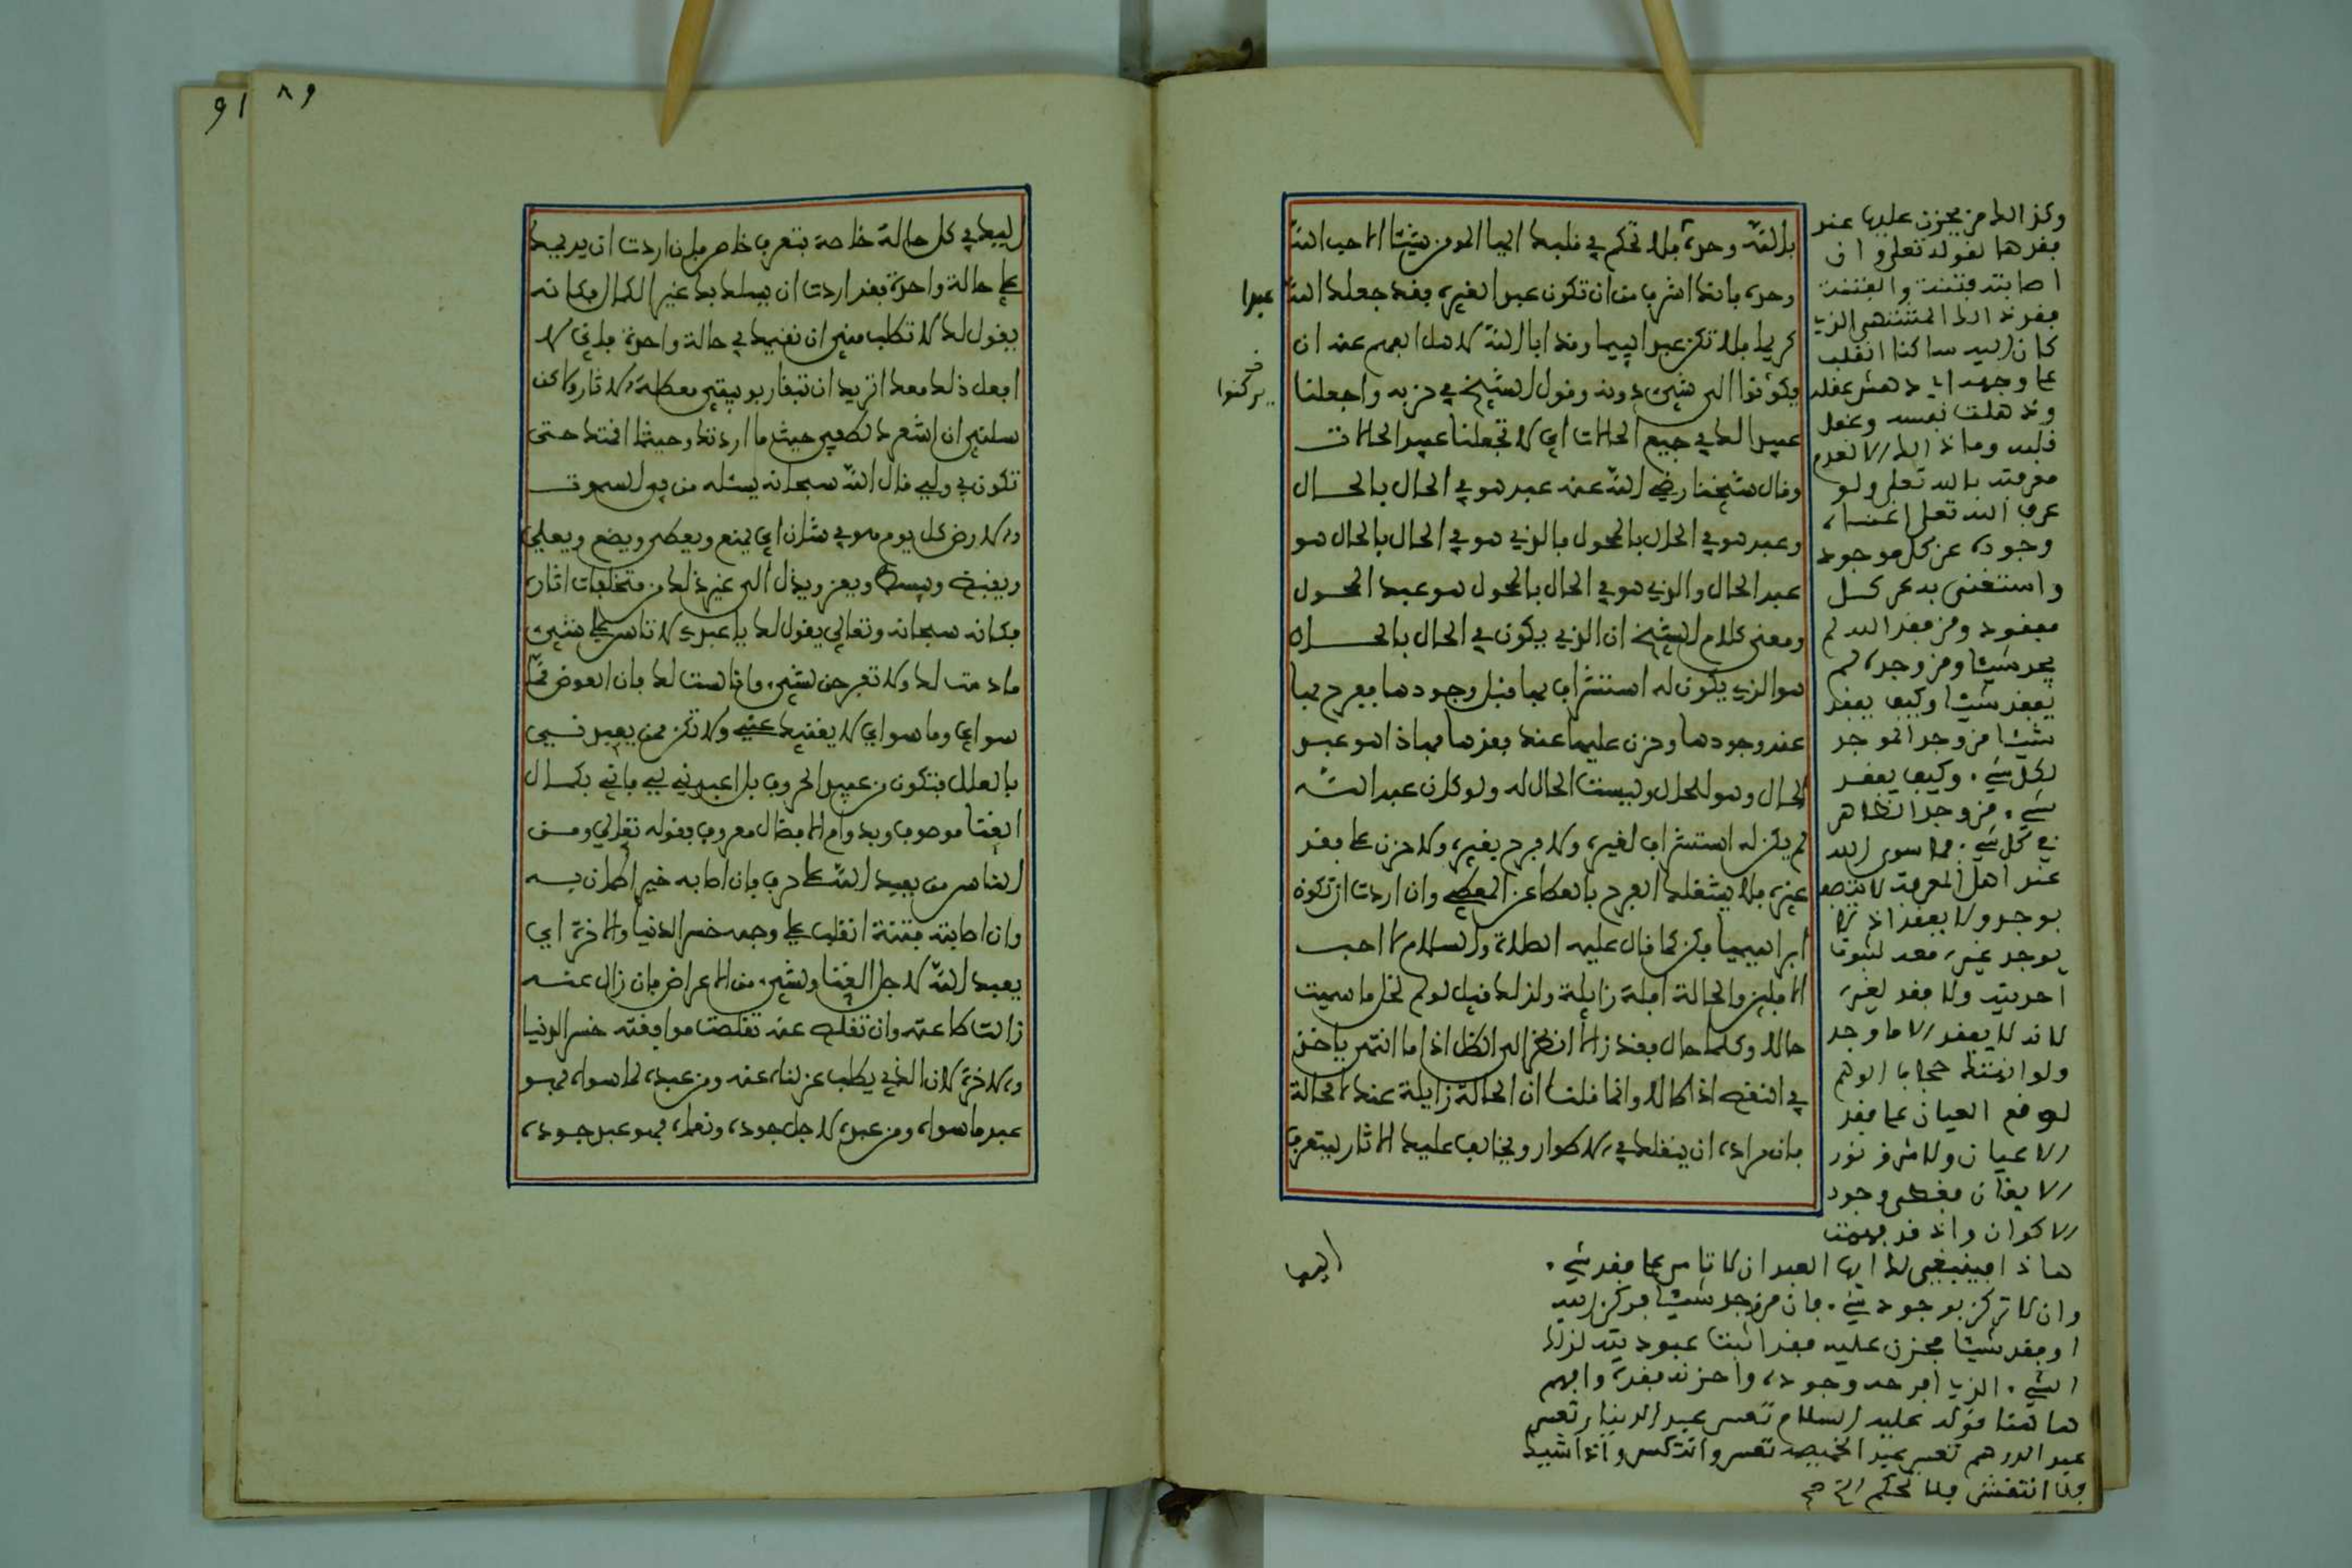 بالله وحده فلا تحكم في قلبك ايها المومن شيئا الا حب الله
وحده فانك اشرف من ان تكون عبد الغيره فقد جعلك الله
كريما فلا تكن عبدا لئيما وقد ابا الله لاهل الفهم عنه ان
يكونوا الى شيئ دونه وقول الشيخ في حزبه واجعلنا
عبيدا لك في جميع الحالات اي لا تجعلنا عبيد الحالات
وقال شيخنا رضي الله عنه عبد هو في الحال بالحال
وعبد هو في الحال بالمحول فالذي هو في الحال بالحال هو
عبد الحال والذي هو في الحال بالمحول هو عبد المحول
ومعنى كلام الشيخ ان الذي يكون في الحال بالحال
هو الذي يكون له استشراف بها قبل وجودها فيفرح بها
عند وجودها وحزن عليها عند فقدها فهاذا هو عبد
الحال وهو للحال وليست الحال له ولو كان عبد الله
لم يكن له استشراف لغيره ولا فرح بغيره ولا حزن على فقد
غيره فلا يشغلك الفرح بالعطا عن المعطي وان اردت ان تكون
ابراهيميا فكن كما قال عليه الصلاة والسلام لا احب
الافلين والحالة افلة زايلة ولذلك قيل لو لم تحل ما سميت
حالا وكلما حال فقد زالا انظر الى الظل اذا ما انتهى ياخذ
في النقص اذا طالا وانما قلنا ان الحالة زايلة عند الحالة
فان مراده ان ينقلك في الاطوار ويخالف عليك الاثار ليتعرف
عبدا
يركنوا
وكذالك من يحزن عليها عند
فقدها لقوله تعلى وان
اصابته فتنة والفتنة
فقد ذالك المشتهى الذي
كان اليه ساكنا انقلب
على وجهه اي دهش عقله
وذهلت نفسه وغفل
قلبه وما ذالك الا لعدم
معرفته بالله تعلى ولو
عرف الله تعلى اغناه
وجوده عن كل موجود
واستغنى به عن كل
مفقود ومن فقد الله لم
يجد شيئا ومن وجده لم
يفقد شيئا وكيف يفقد
شيئا من وجد الموجد
لكل شيء وكيف يفقد
شيء من وجد الظاهر
في كل شيء فما سوى الله
عند اهل المعرفة لا يتصف
بوجد ولا بفقد اذ لا
يوجد غيره معه لثبوت
احديته ولا فقد لغيره
لانه لا يفقد الا ما وجد
ولو انهتك حجاب الوهم
لوقع العيان على فقد
الاعيان ولاشرق نور
الايقان فغطى وجود
الاكوان واذ قد فهمت
هاذا فينبغي لك ايها العبد ان لا تاس على فقد شيء
وان لا تركن بوجود شيء فان من وجد شيئا فركن اليه
او فقد شيئا فحزن عليه فقد اثبت عبوديته لذلك
الشيء الذي افرحه وجوده واحزنه فقده وافهم
هاهنا قوله عليه السلام تعس عبد الدينار تعس
عبد الدرهم تعس عبد الخميصة تعس وانتكس واذا شيك
فلا انتقش فلا تحكم الخ صح
اليها
٨٩
91
اليك في كل حالة خاصة بتعرف خاص فان اردت ان يديمك
على حالة واحدة فقد اردت ان يسلك بك غير الكمال فكانه
يقول لك لا تطلب مني ان نقيمك في حالة واحدة فاني لا
افعل ذلك معك اتريد ان تبقا ربوبيتي معطلة الاثار ولاكن
سلني ان اشهدك لطفي حيث ما اردتك وحيثما اقمتك حتى
تكون بي ولي قال الله سبحانه يسئله من في السموت
والارض كل يوم هو في شان اي يمنع ويعطي ويضع ويعلي
ويقبض ويبسط ويعز ويذل الى غير ذلك من متخلفات اثاره
فكانه سبحانه وتعالى يقول لك يا عبدي لا تاس على شيئ
ما دمت لك ولا تفرحن بشيء وانا لست لك فان العوض عما
سواي وما سواي لا يغنيك عني ولا تكن ممن يعبدني
بالعلل فتكون من عبيد الحروف بل اعبدني لي فاني بكمال
الغنا موصوف وبدوام الافضال معروف بقوله تعالى ومن
الناس من يعبد الله على حرف فان اصابه خير اطمان به
وان اصابته فتنة انقلب على وجهه خسر الدنيا والاخرة اي
يعبد الله لاجل الغنا ولشيء من الاعراض فان زال عنه
زالت طاعته وان تقلص عنه تقلصت موافقته خسر الدنيا
والاخرة لان الذي يطلب عزلناه عنه ومن عبده لما سواه فهو
عبد ما سواه ومن عبده لاجل جوده ونعماه فهو عبد جوده